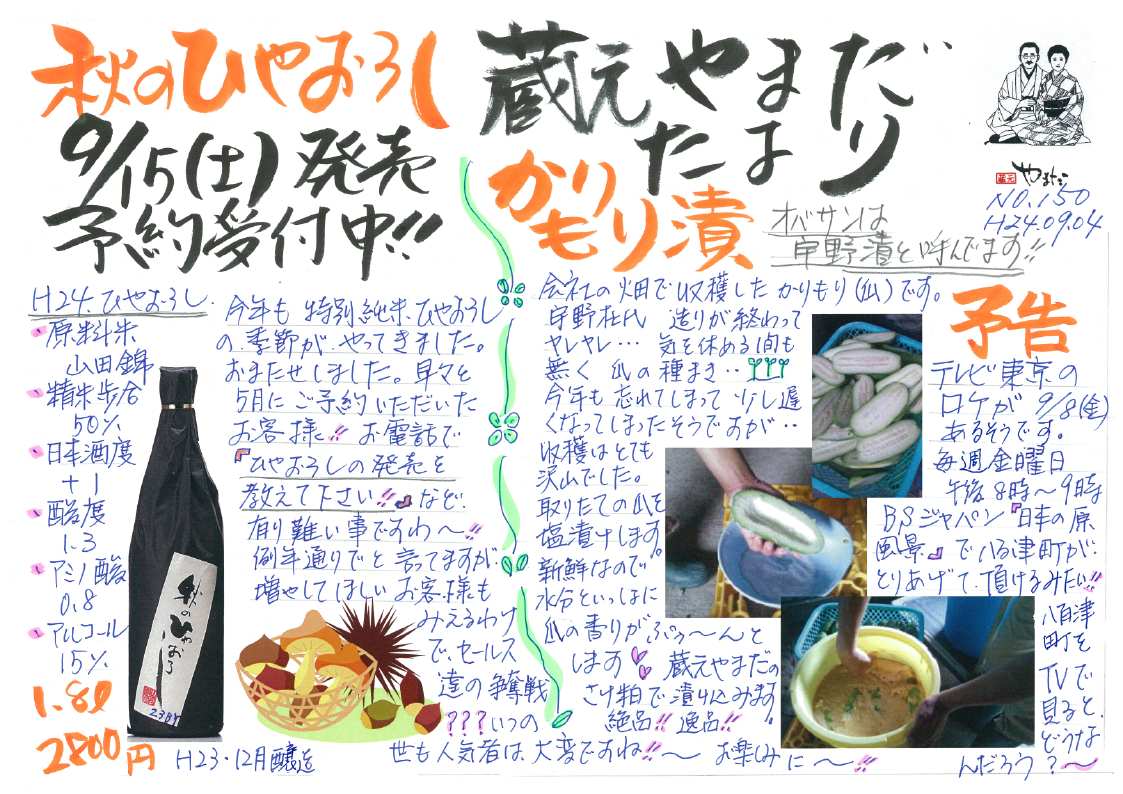 秋のひやおろし
9/15(土)発売
予約受付中!!
蔵元やまだ
たより
やまだ
NO.150
H24.09.04
かり
もり漬
オバサンは
宇野漬と呼んでます!!
H24.ひやおろし
原料米
山田錦
精米歩合
50%
日本酒度
+1
酸度
1.3
アミノ酸
0.8
アルコール
15%
1.8ℓ
2800円
今年も 特別純米、ひやおろし
の季節が やってきました。
おまたせしました。早々と
5月に ご予約いただいた
お客様!! お電話で
『ひやおろしの発売を
教えて下さい!!』など、
有り難い事ですわ〜!!
例年通りでと言ってますが、
増やしてほしいお客様も
みえるわけ
で、セールス
達の争奪戦
???いつの
世も人気者は、大変ですね!!〜
秋のひやおろし
23BY
H23・12月醸造
会社の畑で収穫した かりもり(瓜)です。
宇野杜氏 造りが終わって
ヤレヤレ… 気を休める間も
無く 瓜の種まき‥
今年も忘れてしまって 少し遅
くなってしまったそうですが‥
収穫はとても
沢山でした。
取りたての瓜を
塩漬けします。
新鮮なので
水分といっしょに
瓜の香りが、ぷぅ〜んと
します 蔵元やまだの
さけ粕で漬け込みます。
絶品!! 逸品!!
お楽しみに〜!!
予告
テレビ東京の
ロケが 9/8(金)
あるそうです。
毎週金曜日
午後8時〜9時
B.Sジャパン『日本の原
風景』で八百津町が、
とりあげて、頂けるみたい!!
八百津
町を
TVで
見ると、
どうな
んだろう?〜